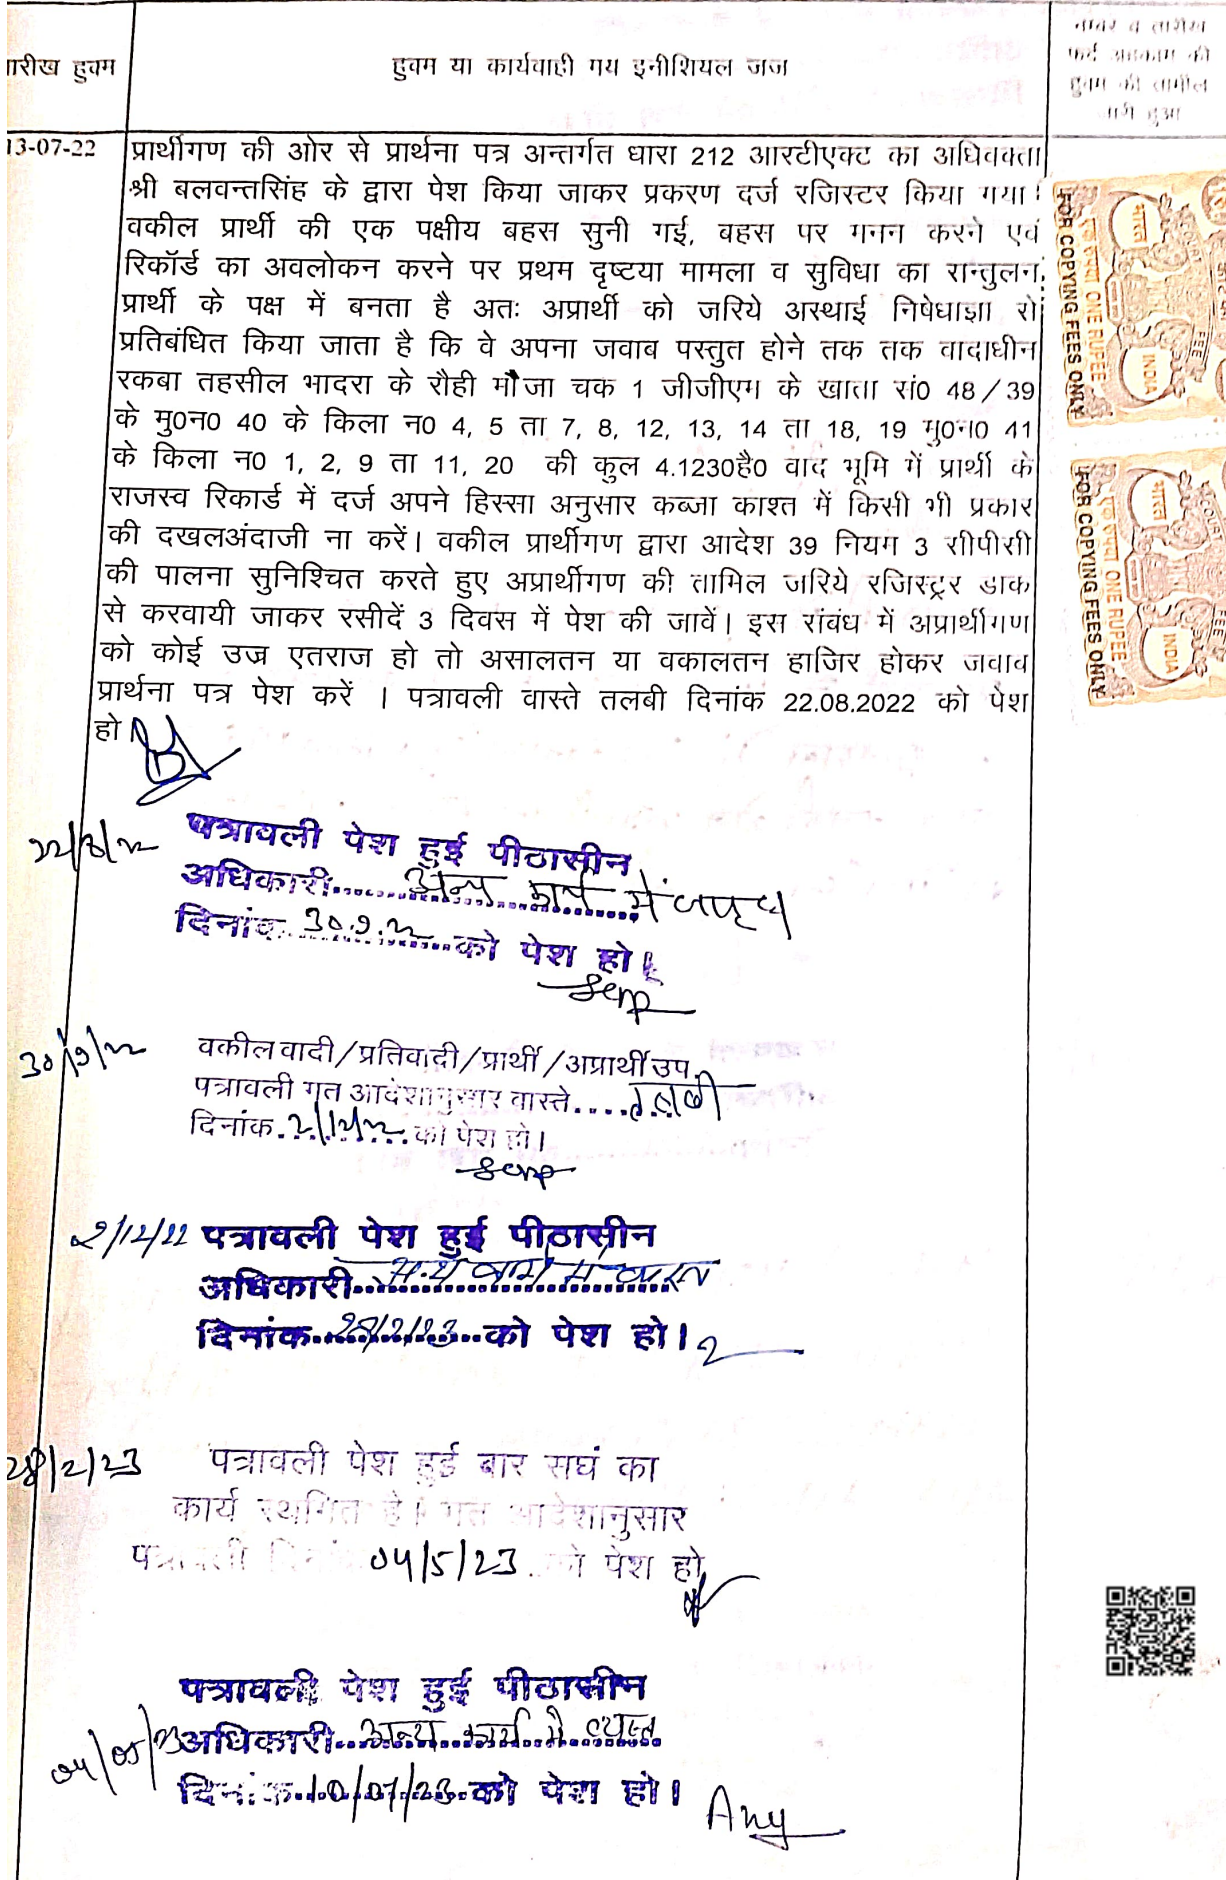 तारीख हुक्म
हुक्म या कार्यवाही मय इनीशियल जज
नम्बर व तारीख
फर्द अहकाम की
हुक्म की तामील
जारी हुआ
13-07-22
प्रार्थीगण की ओर से प्रार्थना पत्र अन्तर्गत धारा 212 आरटीएक्ट का अधिवक्ता
श्री बलवन्तसिंह के द्वारा पेश किया जाकर प्रकरण दर्ज रजिस्टर किया गया।
वकील प्रार्थी की एक पक्षीय बहस सुनी गई, बहस पर मनन करने एवं
रिकॉर्ड का अवलोकन करने पर प्रथम दृष्टया मामला व सुविधा का सन्तुलन
प्रार्थी के पक्ष में बनता है अतः अप्रार्थी को जरिये अस्थाई निषेधाज्ञा से
प्रतिबंधित किया जाता है कि वे अपना जवाब पस्तुत होने तक तक वादाधीन
रकबा तहसील भादरा के रौही मौजा चक 1 जीजीएम के खाता सं0 48/39
के मु0न0 40 के किला न0 4, 5 ता 7, 8, 12, 13, 14 ता 18, 19 मु0न0 41
के किला न0 1, 2, 9 ता 11, 20 की कुल 4.1230है0 वाद भूमि में प्रार्थी के
राजस्व रिकार्ड में दर्ज अपने हिस्सा अनुसार कब्जा काश्त में किसी भी प्रकार
की दखलअंदाजी ना करें। वकील प्रार्थीगण द्वारा आदेश 39 नियम 3 सीपीसी
की पालना सुनिश्चित करते हुए अप्रार्थीगण की तामिल जरिये रजिस्ट्रर डाक
से करवायी जाकर रसीदें 3 दिवस में पेश की जावें। इस संबंध में अप्रार्थीगण
को कोई उज्र एतराज हो तो असालतन या वकालतन हाजिर होकर जवाब
प्रार्थना पत्र पेश करें । पत्रावली वास्ते तलबी दिनांक 22.08.2022 को पेश
हो।
भारत
एक रुपया ONE RUPEE
INDIA
COURT FEE
FOR COPYING FEES ONLY
भारत
एक रुपया ONE RUPEE
INDIA
COURT FEE
FOR COPYING FEES ONLY
22/8/22 पत्रावली पेश हुई पीठासीन
अधिकारी अन्य कार्य में व्यस्त
दिनांक 30.9.22 को पेश हो।
30/9/22 वकील वादी/प्रतिवादी/प्रार्थी/अप्रार्थी उप.
पत्रावली गत आदेशानुसार वास्ते..... तलबी
दिनांक. 2/12/22 को पेश हो।
2/12/22 पत्रावली पेश हुई पीठासीन
अधिकारी अन्य कार्य में व्यस्त
दिनांक 28/2/23 को पेश हो।
28/2/23 पत्रावली पेश हुई बार सघं का
कार्य स्थगित है। गत आदेशानुसार
पत्रावली दिनांक 04/5/23 को पेश हो
पत्रावली पेश हुई पीठासीन
04/05/23 अधिकारी अन्य कार्य मे व्यस्त
दिनांक 10/07/23 को पेश हो।